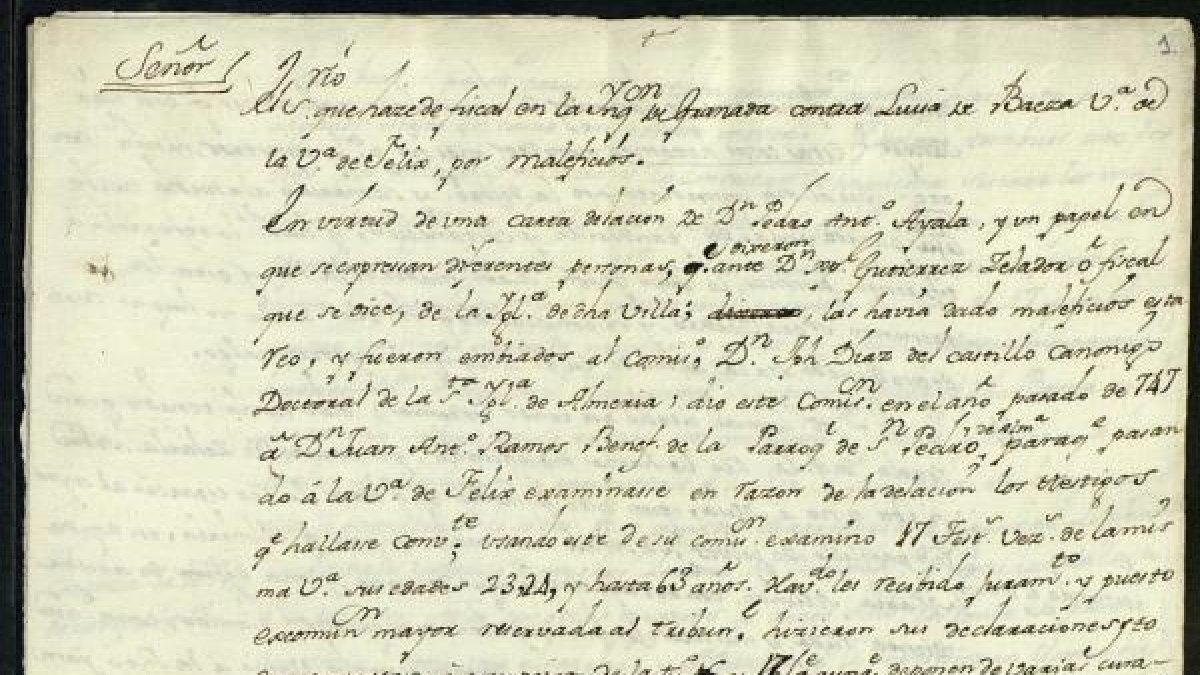 1
Señor
El S.rio que haze de fiscal en la Ynq.on de Granada contra Lucia de Baeza V.a de
la V.a de Felix, por maleficios.
En virtud de una carta delacion de D.n Pedro Ant.o Ayala, y un papel en
que se expresan diferentes personas, q.e dixeron ante D.n Gutierrez Zelador ô fiscal
que se dice, de la Ygl.a de dha villa; las havia dado maleficios esta
reo, y fueron embiados al comis.o D.n Jph Diaz del castillo canonigo
Doctoral de la S.ta Ygl.a de Almeria; dio este Comis.on en el año pasado de 747
â D.n Juan Ant.o Ramos Benef. de la Parroq.l de S.n Pedro, para q.e pasan
do â la V.a de Felix examinase en razon de la delacion los testigos
q.e hallase conv.te; usando este de su comis.on examino 17 Test.s vez.s de la mis
ma V.a sus edades 23, 24, y hasta 63 años. Hav.do les recibido Juram.to y puesto
excomun.n mayor reservada al tribun.l hizieron sus declaraciones, y to
deponen de varias cura-